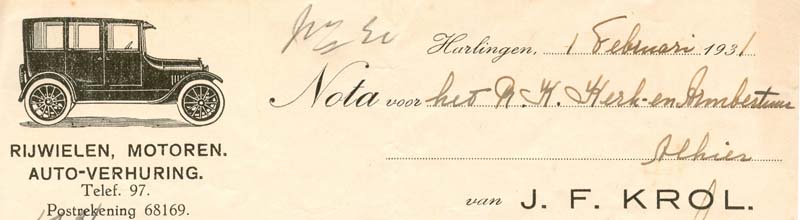 Harlingen, 1 Februari 1931
Nota voor het R. K. Kerk-en Armbestuur
Alhier
van J. F. KROL.
RIJWIELEN, MOTOREN.
AUTO-VERHURING.
Telef. 97.
Postrekening 68169.